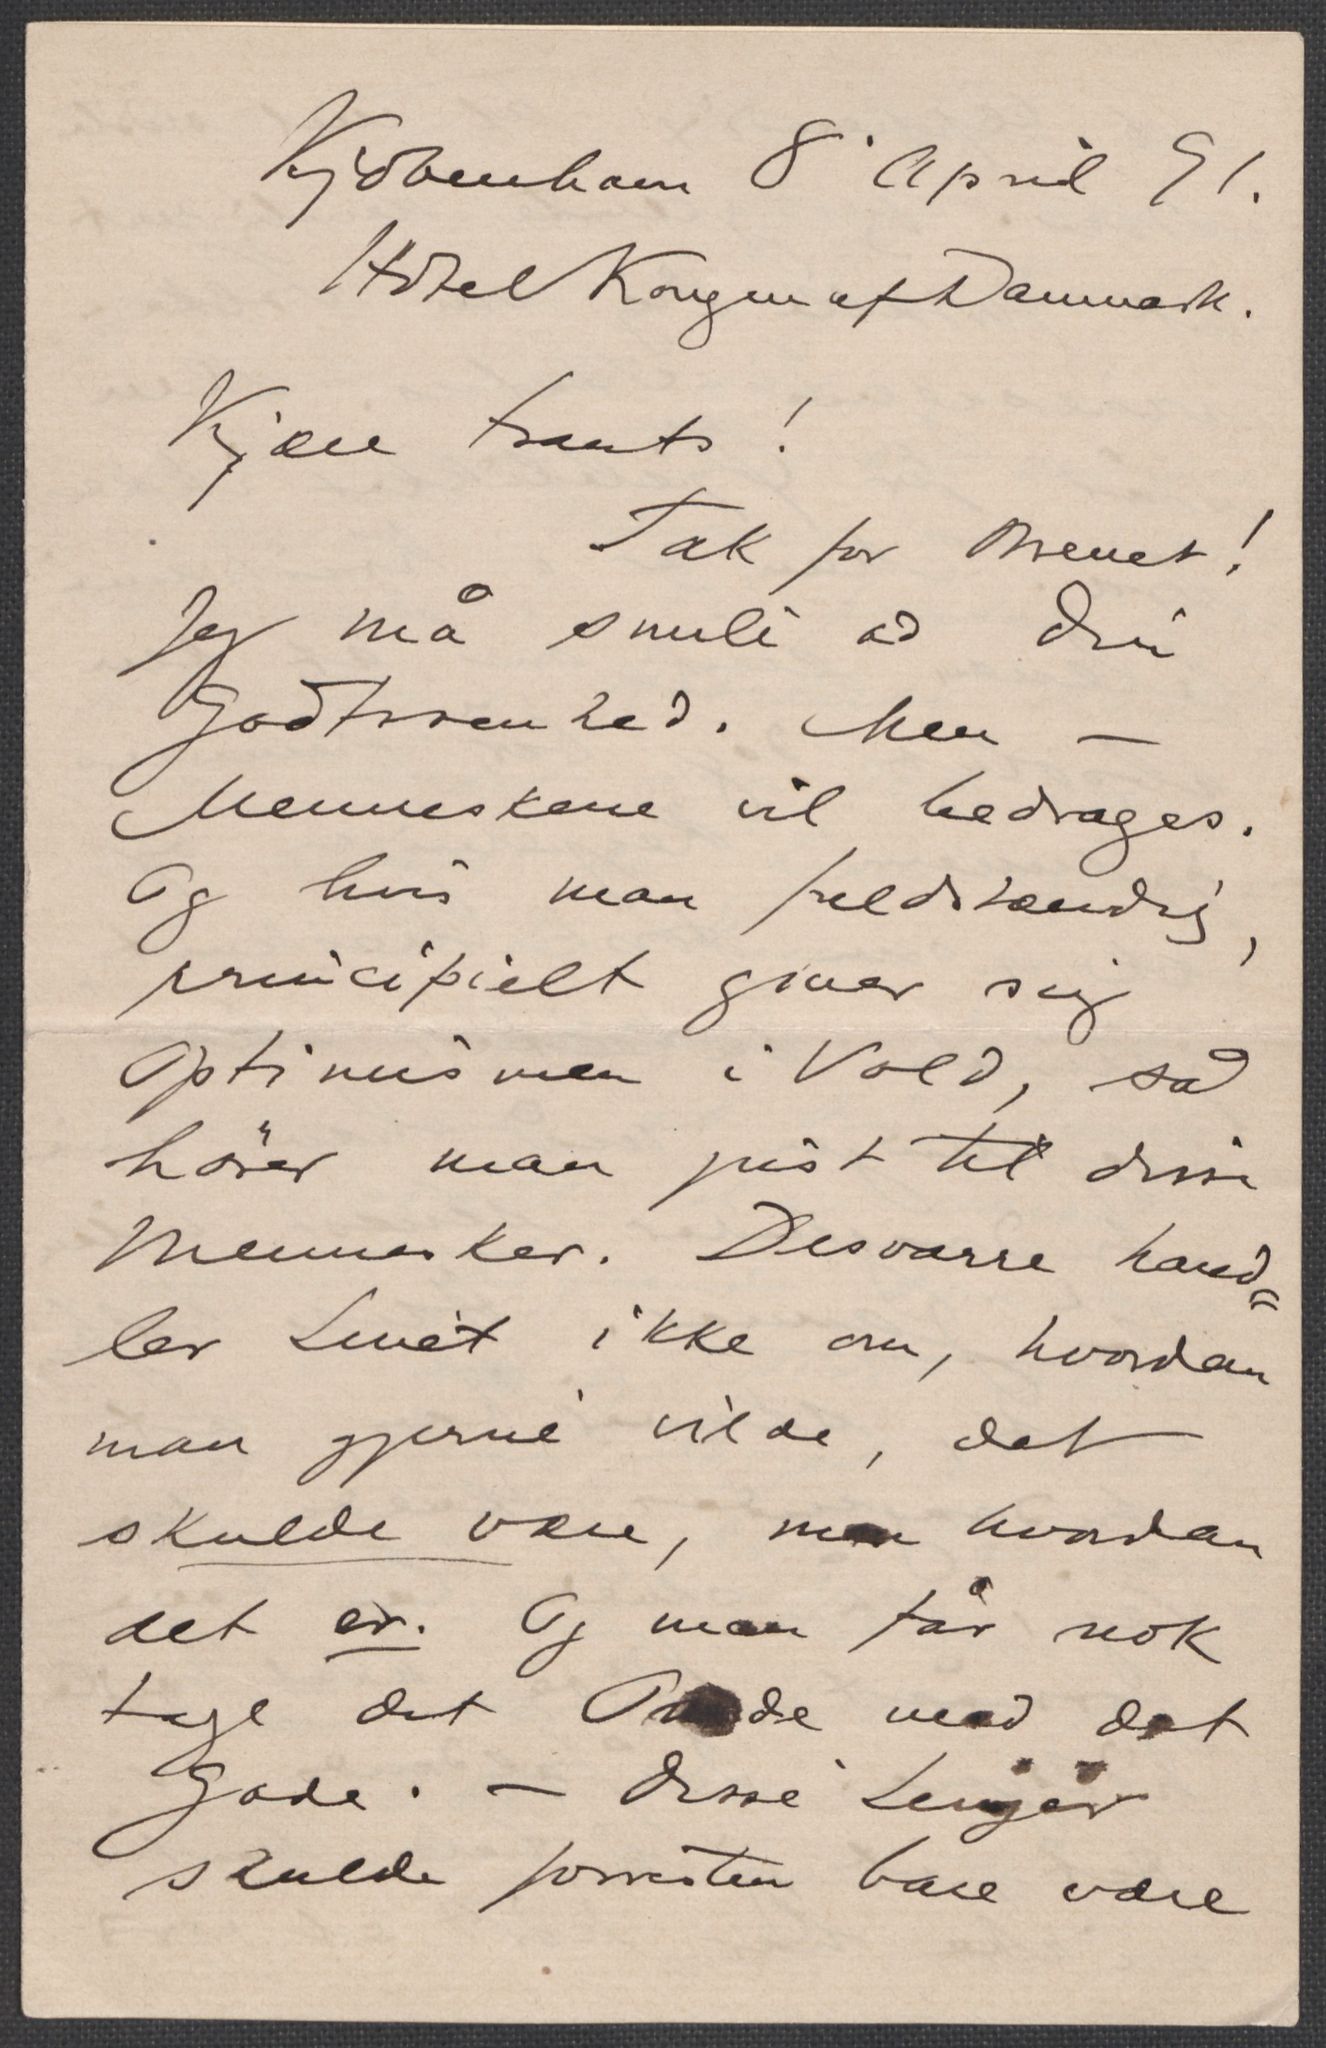 Kjöbenhavn 8' April 91.
Hôtel Kongen af Danmark.
Kjære Frants!
Tak for Brevet!
Jeg må smile ad din
Godtroenhed. Men –
Menneskene vil bedrages.
Og hvis man fuldstændig,
principielt giver sig
Optimismen i Vold, så
hörer man just til disse
Mennesker. Desværre hand=
ler Livet ikke om, hvordan
man gjerne vilde, det
skulde være, men hvordan
det er. Og man får nok
tage det Onde med det
Gode. – Disse Linjer
skulde forresten bare være